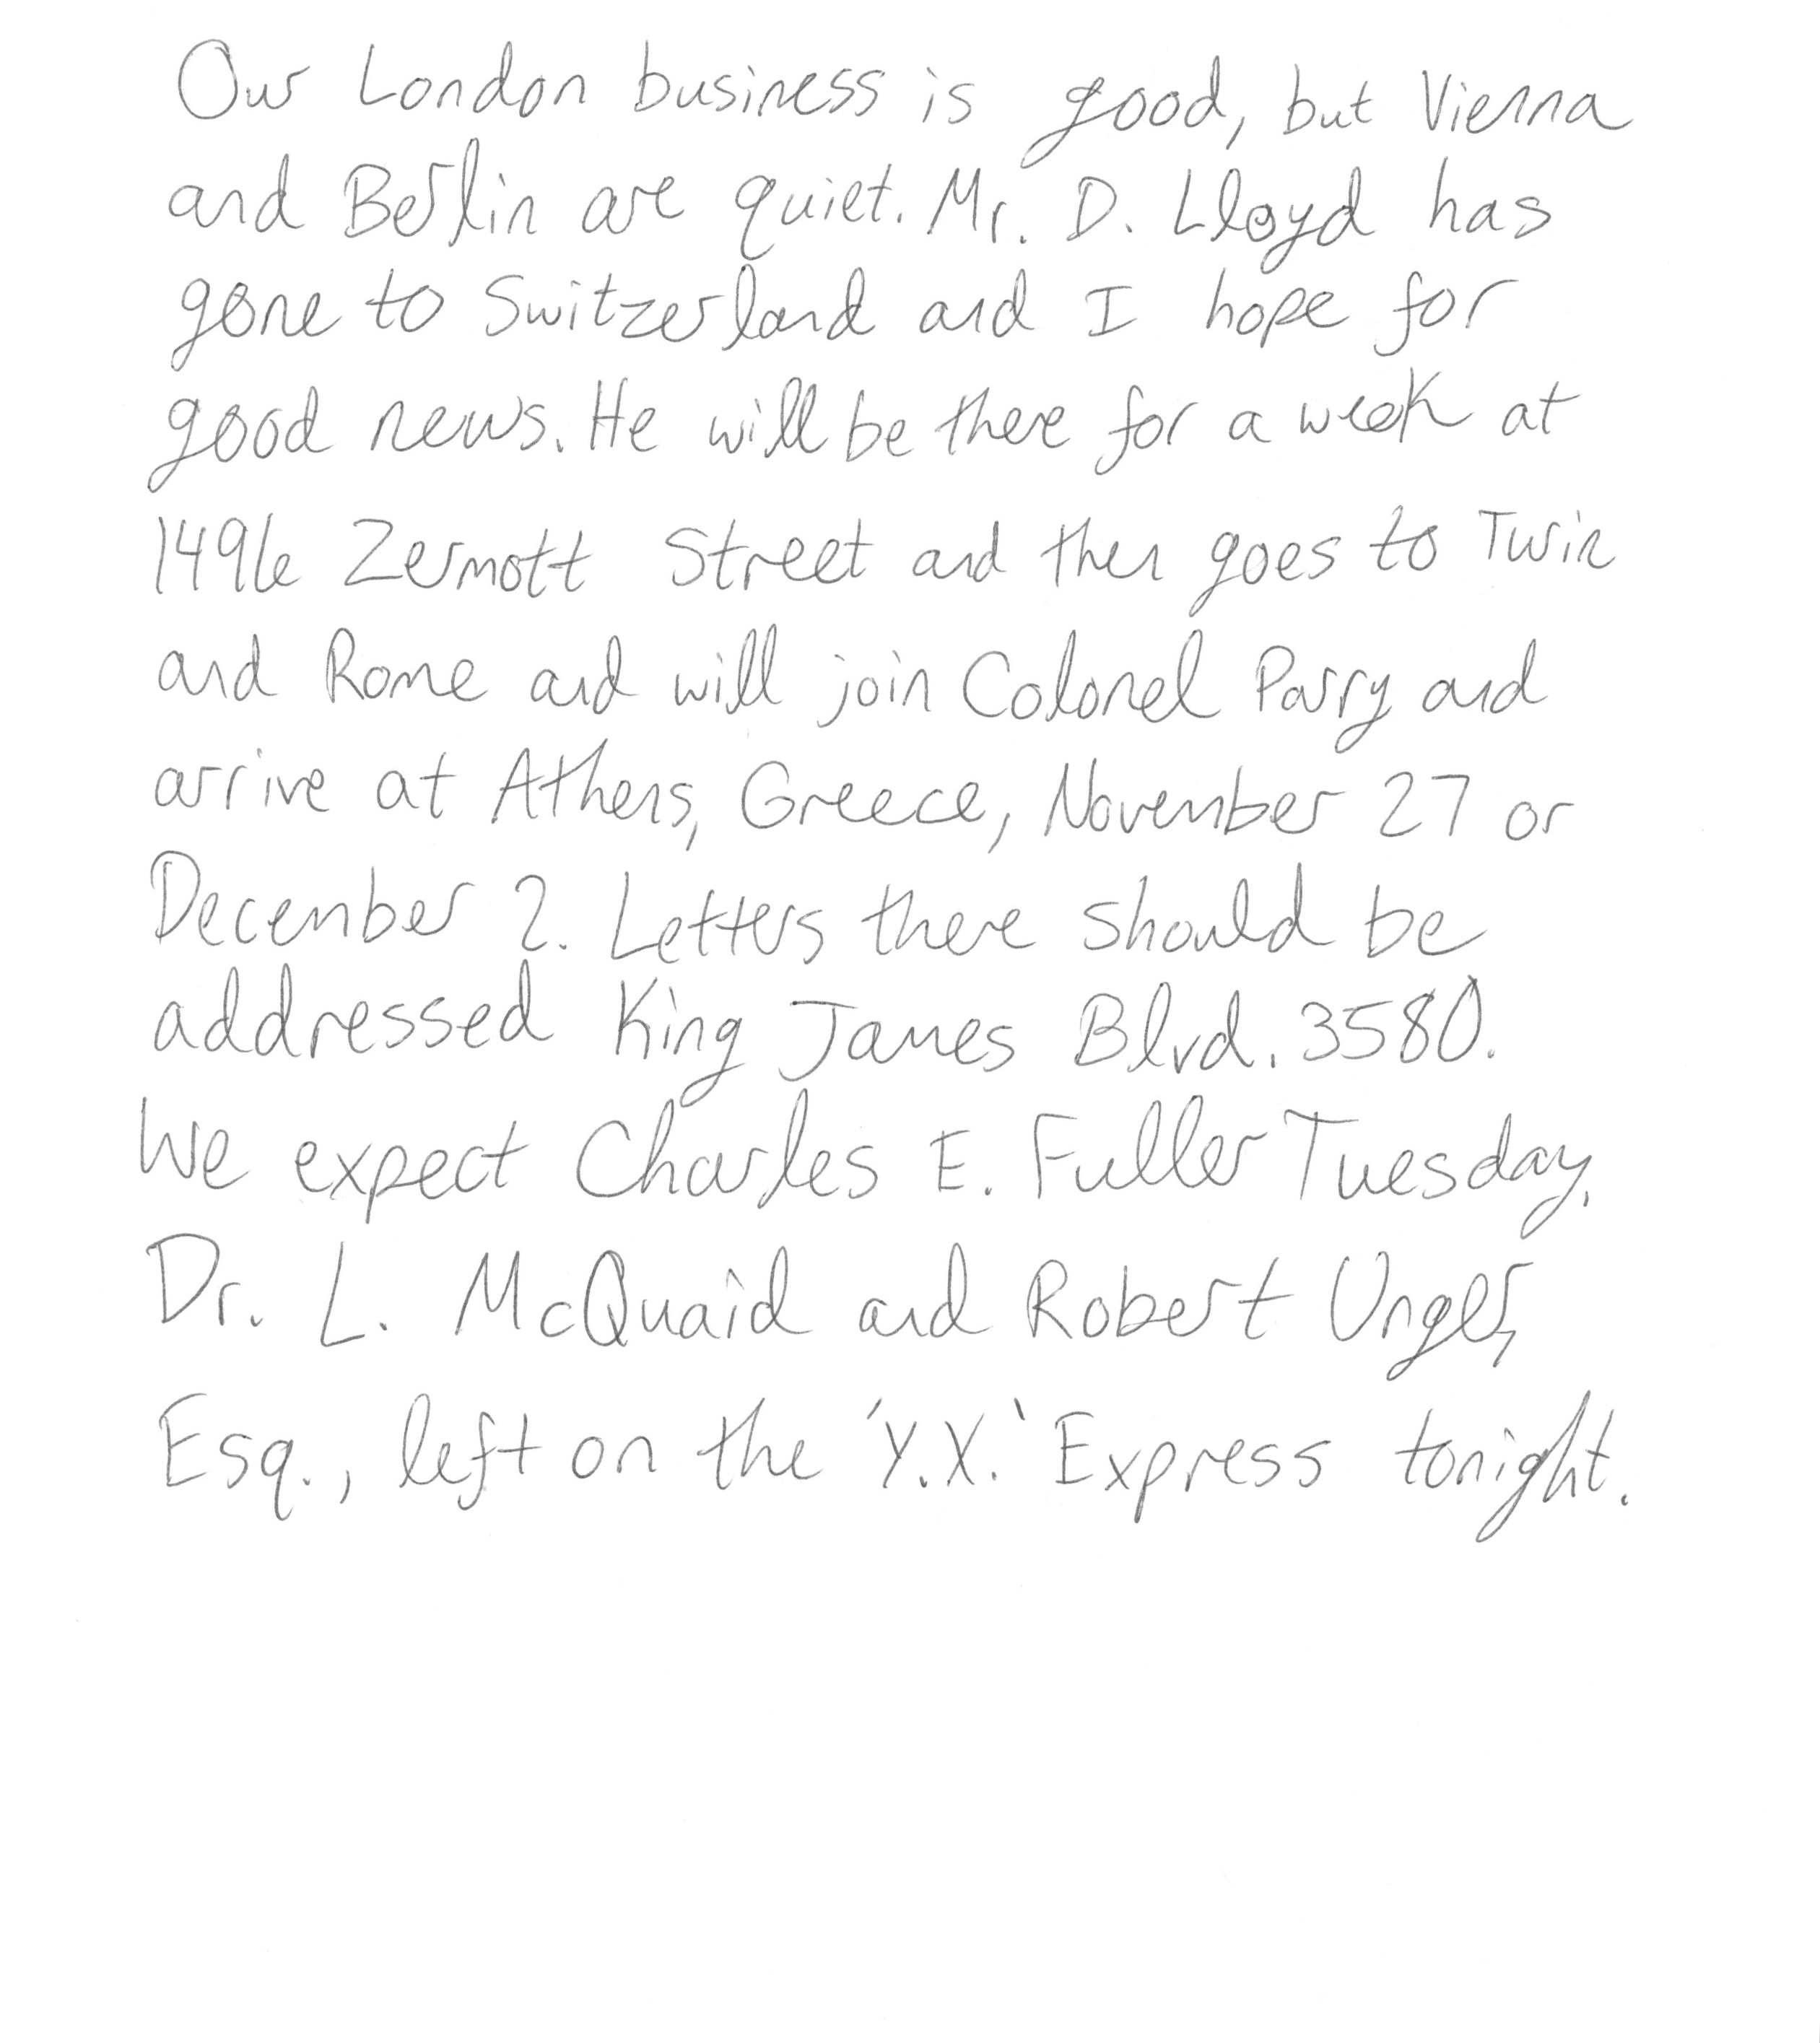 Our London business is good, but Vienna
and Berlin are quiet. Mr. D. Lloyd has
gone to Switzerland and I hope for
good news. He will be there for a week at
1496 Zermott Street and then goes to Turin
and Rome and will join Colonel Parry and
arrive at Athens, Greece, November 27 or
December 2. Letters there should be
addressed King James Blvd. 3580.
We expect Charles E. Fuller Tuesday.
Dr. L. McQuaid and Robert Unger,
Esq., left on the 'Y.X.' Express tonight.